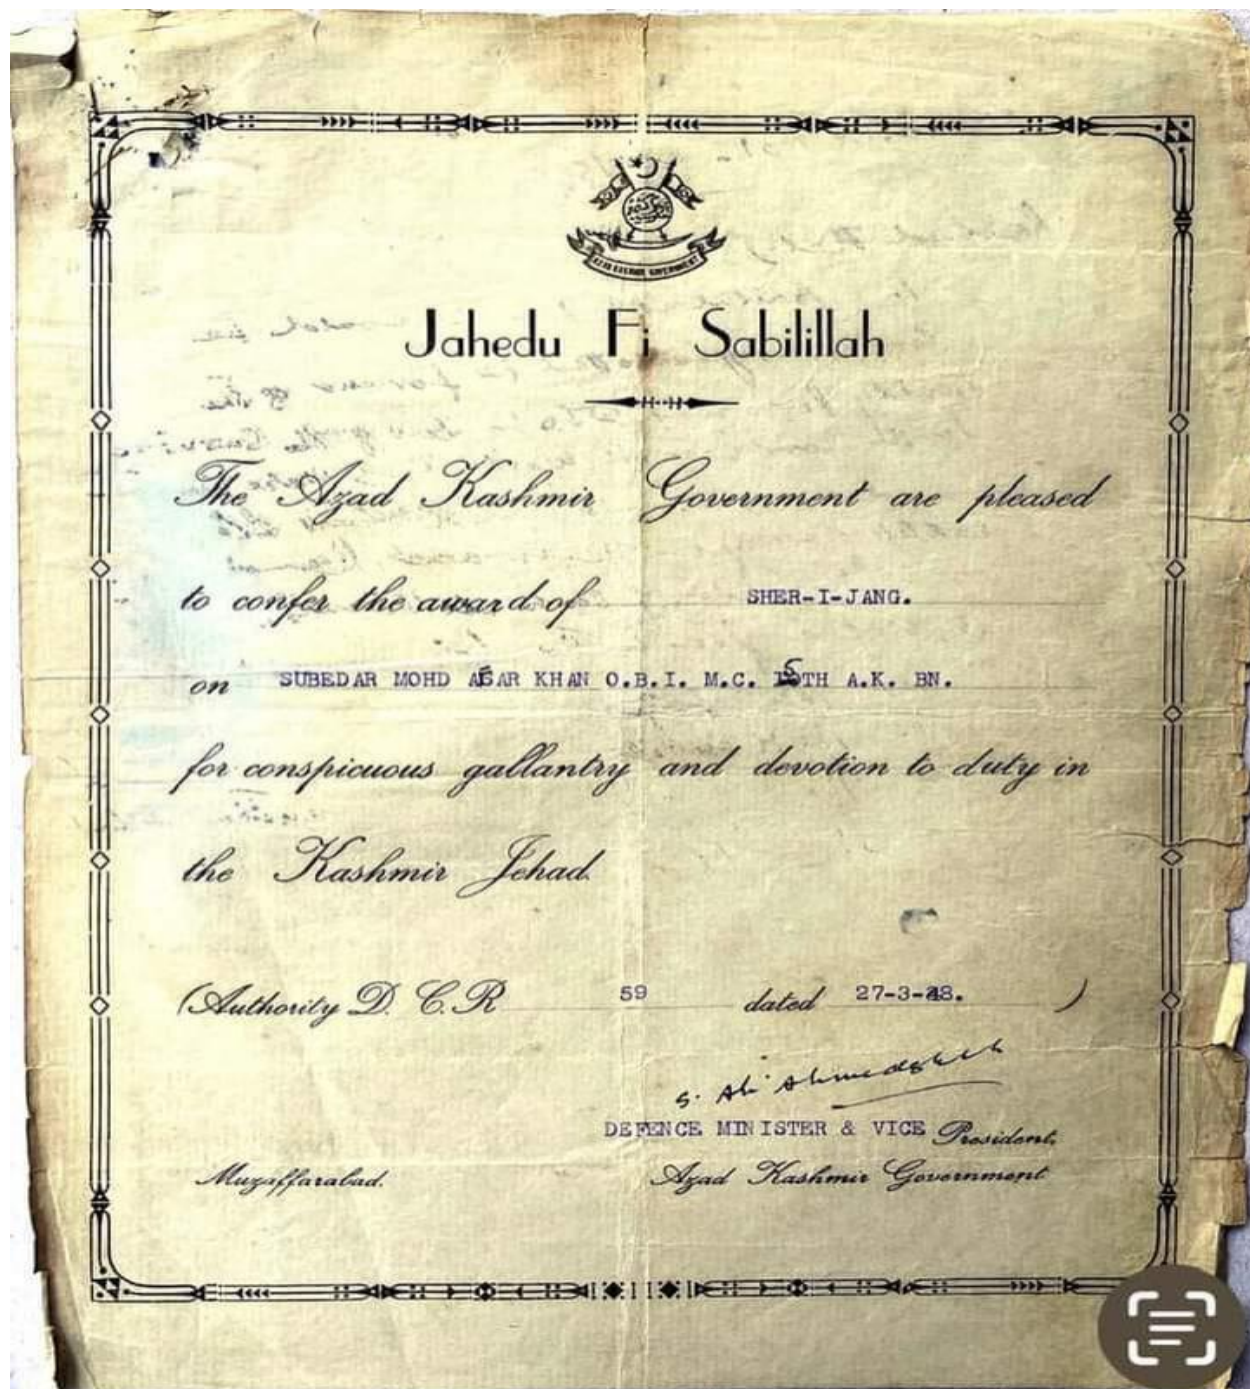 AZAD KASHMIR GOVERNMENT
Jahedu Fi Sabilillah
The Azad Kashmir Government are pleased
to confer the award of SHER-I-JANG.
on SUBEDAR MOHD KHAN O.B.I. M.C. A.K. BN.
for conspicuous gallantry and devotion to duty in
the Kashmir Jehad.
(Authority D. C. R 59 dated 27-3-48. )
S. Ali Ahmed Shah
DEFENCE MINISTER & VICE President,
Muzaffarabad. Azad Kashmir Government